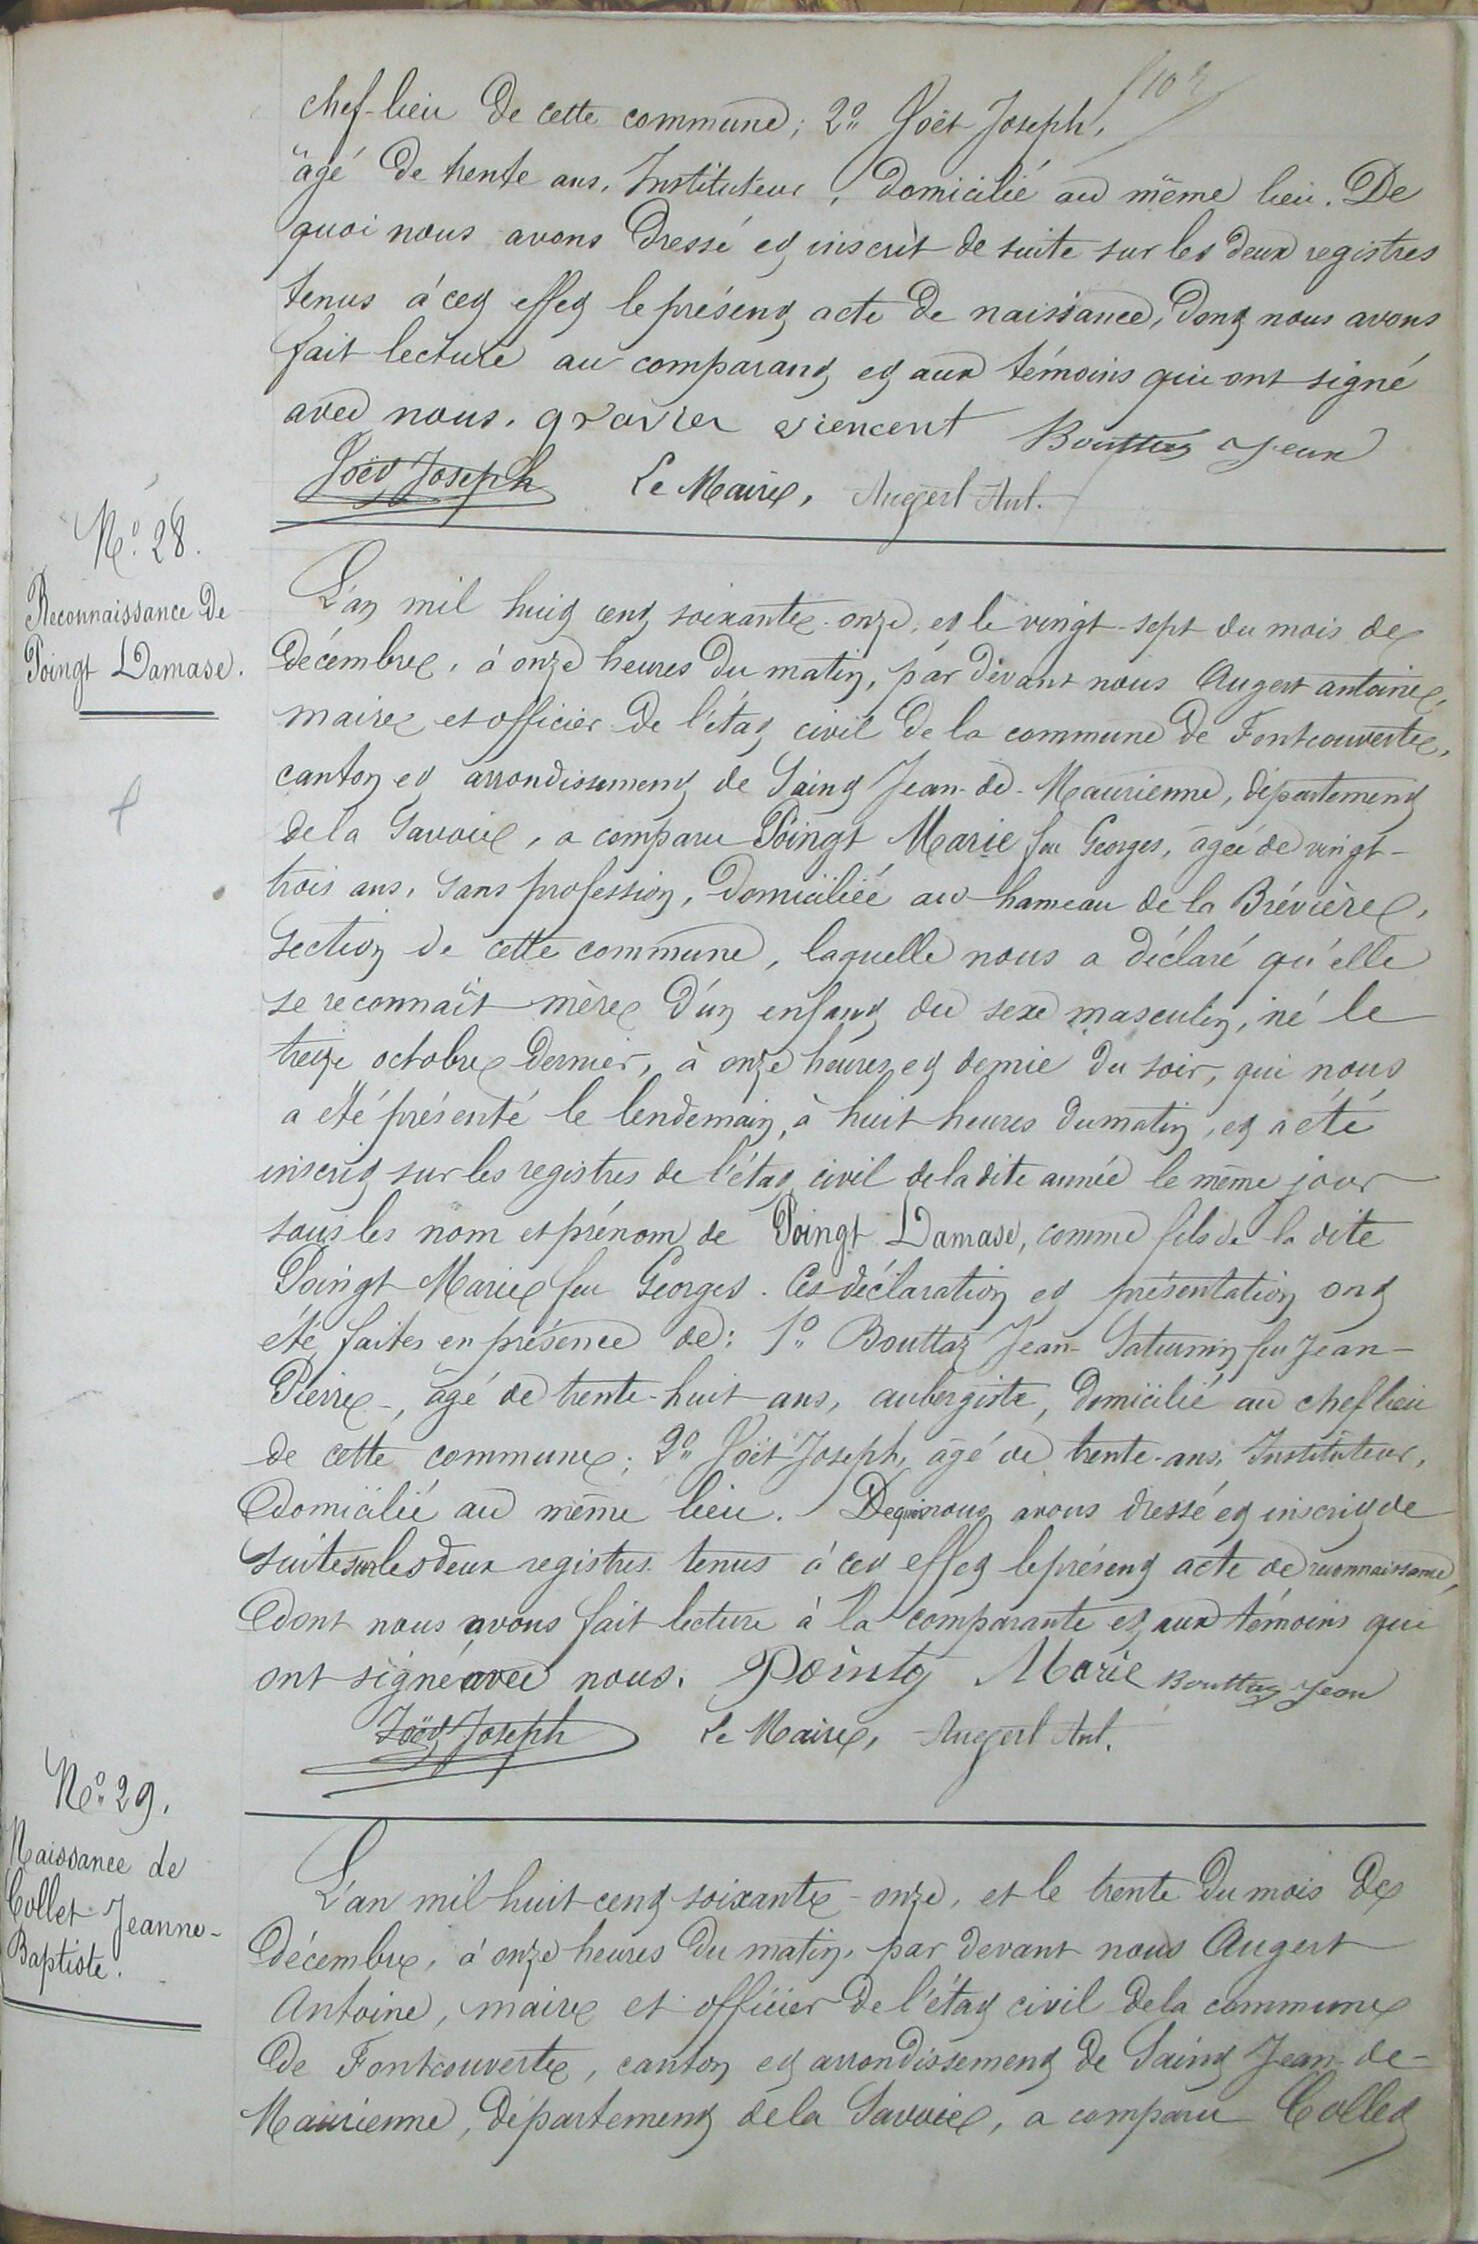 102
chef-lieu de cette commune; 2º Joët Joseph,
âgé de trente ans, Instituteur, domicilié au même lieu. De
quoi nous avons dressé et inscrit de suite sur les deux registres
tenus à cet effet le présent acte de naissance, dont nous avons
fait lecture au comparant et aux témoins qui ont signé
avec nous. gravier viencent Bouttaz Jean
Joët Joseph Le Maire, Augert Ant.
Nº 28.
Reconnaissance de
Poingt Damase.
L'an mil huit cent soixante-onze, et le vingt-sept du mois de
décembre, à onze heures du matin, par devant nous Augert antoine,
maire et officier de l'état civil de la commune de Fontcouverte,
canton et arrondissement de Saint Jean-de-Maurienne, département
de la Savoie, a comparu Poingt Marie feu Georges, âgée de vingt-
trois ans, sans profession, domiciliée au hameau de la Brévière,
section de cette commune, laquelle nous a déclaré qu'elle
se reconnaît mère d'un enfant du sexe masculin, né le
treize octobre dernier, à onze heures et demie du soir, qui nous
a été présenté le lendemain, à huit heures du matin, et a été
inscrit sur les registres de l'état civil de la dite année le même jour
sous les nom et prénom de Poingt Damase, comme fils de la dite
Poingt Marie feu Georges. Ces déclaration et présentation ont
été faites en présence de: 1º Bouttaz Jean-Saturnin feu Jean-
Pierre-, âgé de trente-huit ans, aubergiste, domicilié au chef lieu
de cette commune; 2º Joët Joseph, âgé de trente-ans, Instituteur,
domicilié au même lieu. De quoi nous avons dressé et inscrit de
suite sur les deux registres tenus à cet effet le présent acte de reconnaissance,
dont nous avons fait lecture à la comparante et aux témoins qui
ont signé avec nous. Pointg Marie Bouttaz Jean
Joët Joseph Le Maire, Augert Ant.
Nº 29.
Naissance de
Collet Jeanne-
Baptiste.
L'an mil huit cent soixante-onze, et le trente du mois de
décembre, à onze heures du matin, par devant nous Augert
Antoine, maire et officier de l'état civil de la commune
de Fontcouverte, canton et arrondissement de Saint Jean-de-
Maurienne, département de la Savoie, a comparu Collet